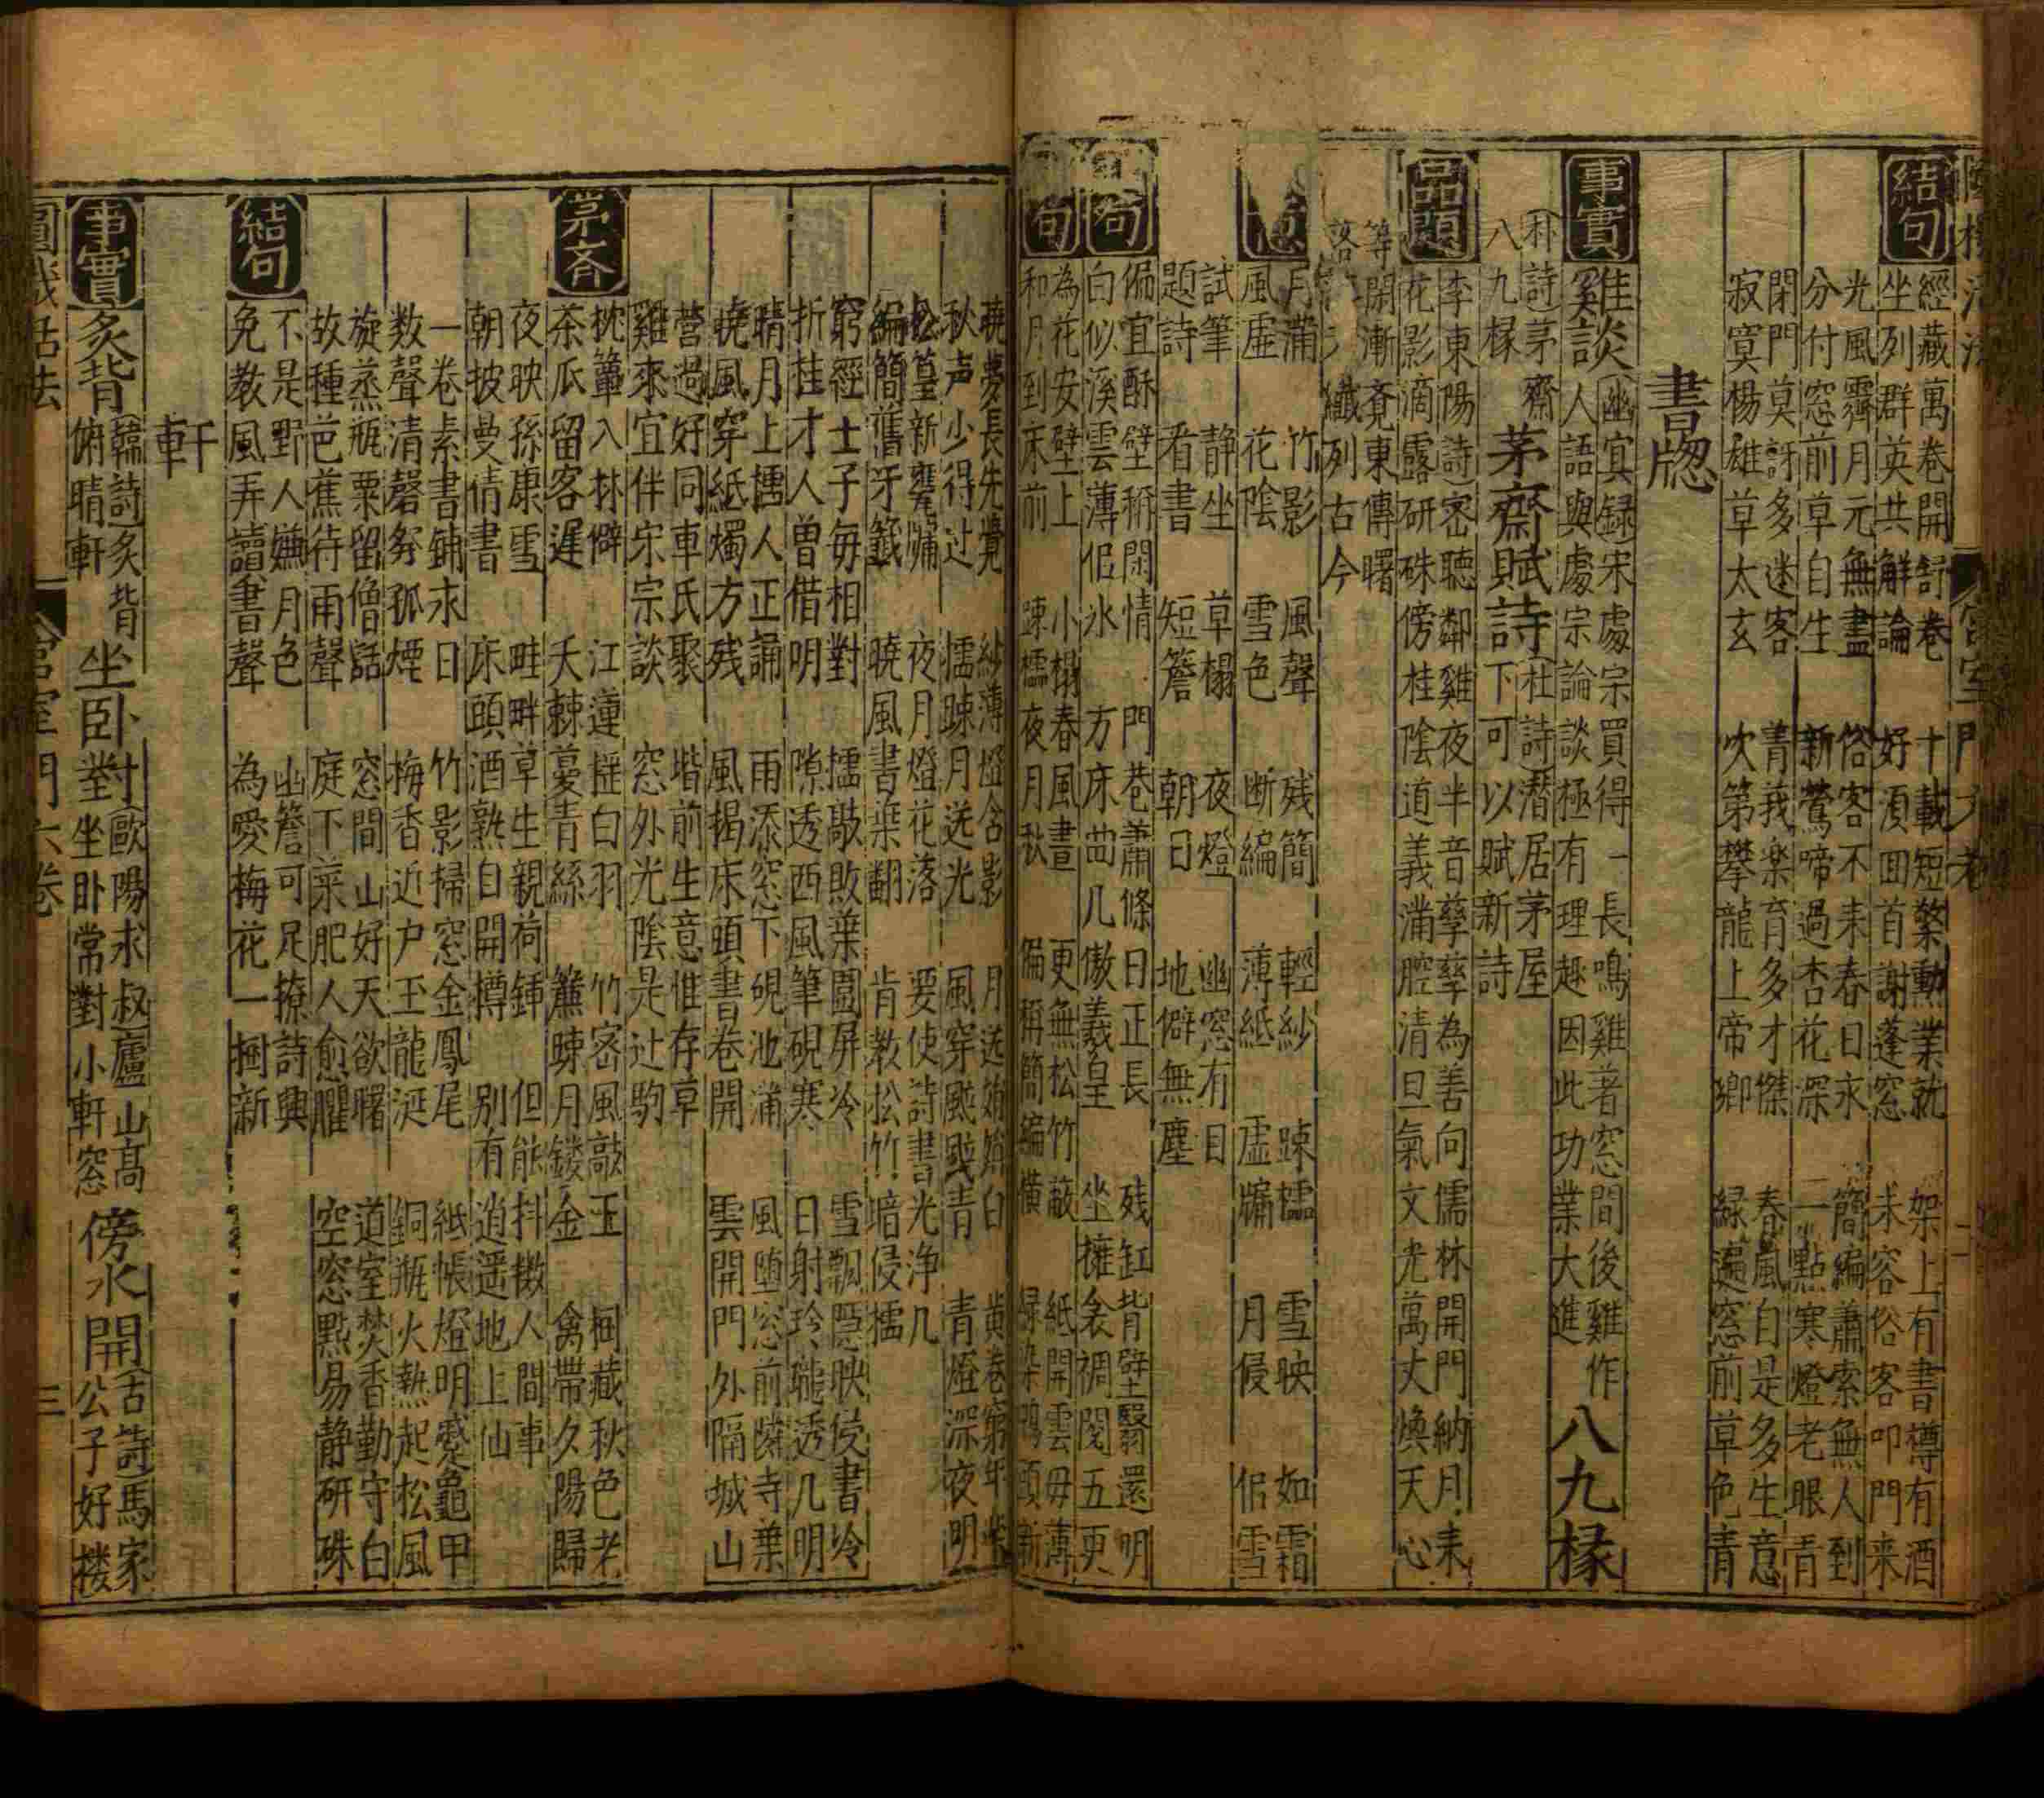 結句
經藏萬卷開舒卷　十載短檠勳業就　架上有書樽有酒
坐列群英共觧論　好湏囬首謝蓬窓　未容俗客叩門来
光風霽月元無盡　俗客不来春日永　簡編蕭索無人到
分付窓前草自生　新鶯啼過杏花深　一點寒燈老眼青
閉門莫訝多迷客　青莪楽育多才傑　春風自是多生意
寂寞楊雄草太玄　吹第攀龍上帝鄉　緑遍窓前草色青
書牕
事實
雞談　幽㝠録宋處宗買得一長鳴雞著窓間後雞作
人語與處宗論談極有理趣因此功業大進　八九椽
詩茅齋　茅齋賦詩　杜詩潛居茅屋
八九椽　下可以賦新詩
品題
李東陽詩密聽鄰雞夜半音孳孳為善向儒林開門納月来
花影滴露研硃傍桂陰道義滿腔清旦氣文光萬丈煥天心
等閑漸覔東傳曙
纖列古今
月滿　竹影　風聲　残簡　輕紗　踈櫺　雪映　如霜
風虚　花陰　雪色　断編　薄紙　虚牖　月侵　侣雪
試筆　静坐　草榻　夜燈　幽窓有目
題詩　看書　短簷　朝日　地僻無塵
句
偏宜酥壁稱閑情　門巷蕭條日正長　残缸背壁翳還明
白似溪雲薄侣氷　方床曲几傲羲皇　坐擁衾裯閱五更
句
為花安壁上　小榻春風晝　更無松竹蔽　紙開雲母薄
和月到床前　踈櫺夜月秋　偏稱簡編橫
曉夢長先覺　紗薄燈含影　月送
秋声少得过　櫺踈月送光　風穿　青　青燈深夜明
松篁新甕牖　夜月燈花落　要使詩書光浄几
編簡舊牙籤　曉風書葉翻　肯教松竹暗侵櫺
窮經士子毎相對　櫺敲敗葉圍屏冷　雪飄隠映侵書冷
折桂才人曽借明　隙透西風筆硯寒　日射玲瓏透几明
晴月上櫺人正誦　雨添窓下硯池滿　風堕窓前隣寺葉
曉風穿紙燭方残　風揭床頭書卷開　雲開門外隔城山
營過好同車氏聚　堦前生意惟存草
雞來宜伴宋宗談　窓外光陰是过駒
茅斉
枕簟入林僻　江蓮揺白羽　竹密風敲玉　桐藏秋色老
茶瓜留客遅　天棘蔓青絲　簾踈月鏤金　禽帶夕陽歸
夜映孫康雪　畦畔草生親荷鍤　但能抖擻人間事
朝披曼倩書　床頭酒熟自開樽　别有逍遥地上仙
一卷素書銷永日　竹影掃窓金鳳尾　紙帳燈明蹙龜甲
数聲清磬夯孤煙　梅香近户玉龍涎　銅瓶火熱起松風
旋蒸瓶粟留僧話　窓間山好天欲曙　道室焚香勤守白
故種芭蕉待雨聲　庭下菜肥人愈臞　空窓點易静研硃
結句
不是野人嫌月色　幽簷可足撩詩興
免教風弄讀書聲　為愛梅花一掬新
軒
事實
炙背　韓詩炙背俯晴軒　坐卧對　歐陽永叔廬山髙對坐卧常對小軒窓　傍水開　古詩馬家公子好楼
宫室門六卷
三